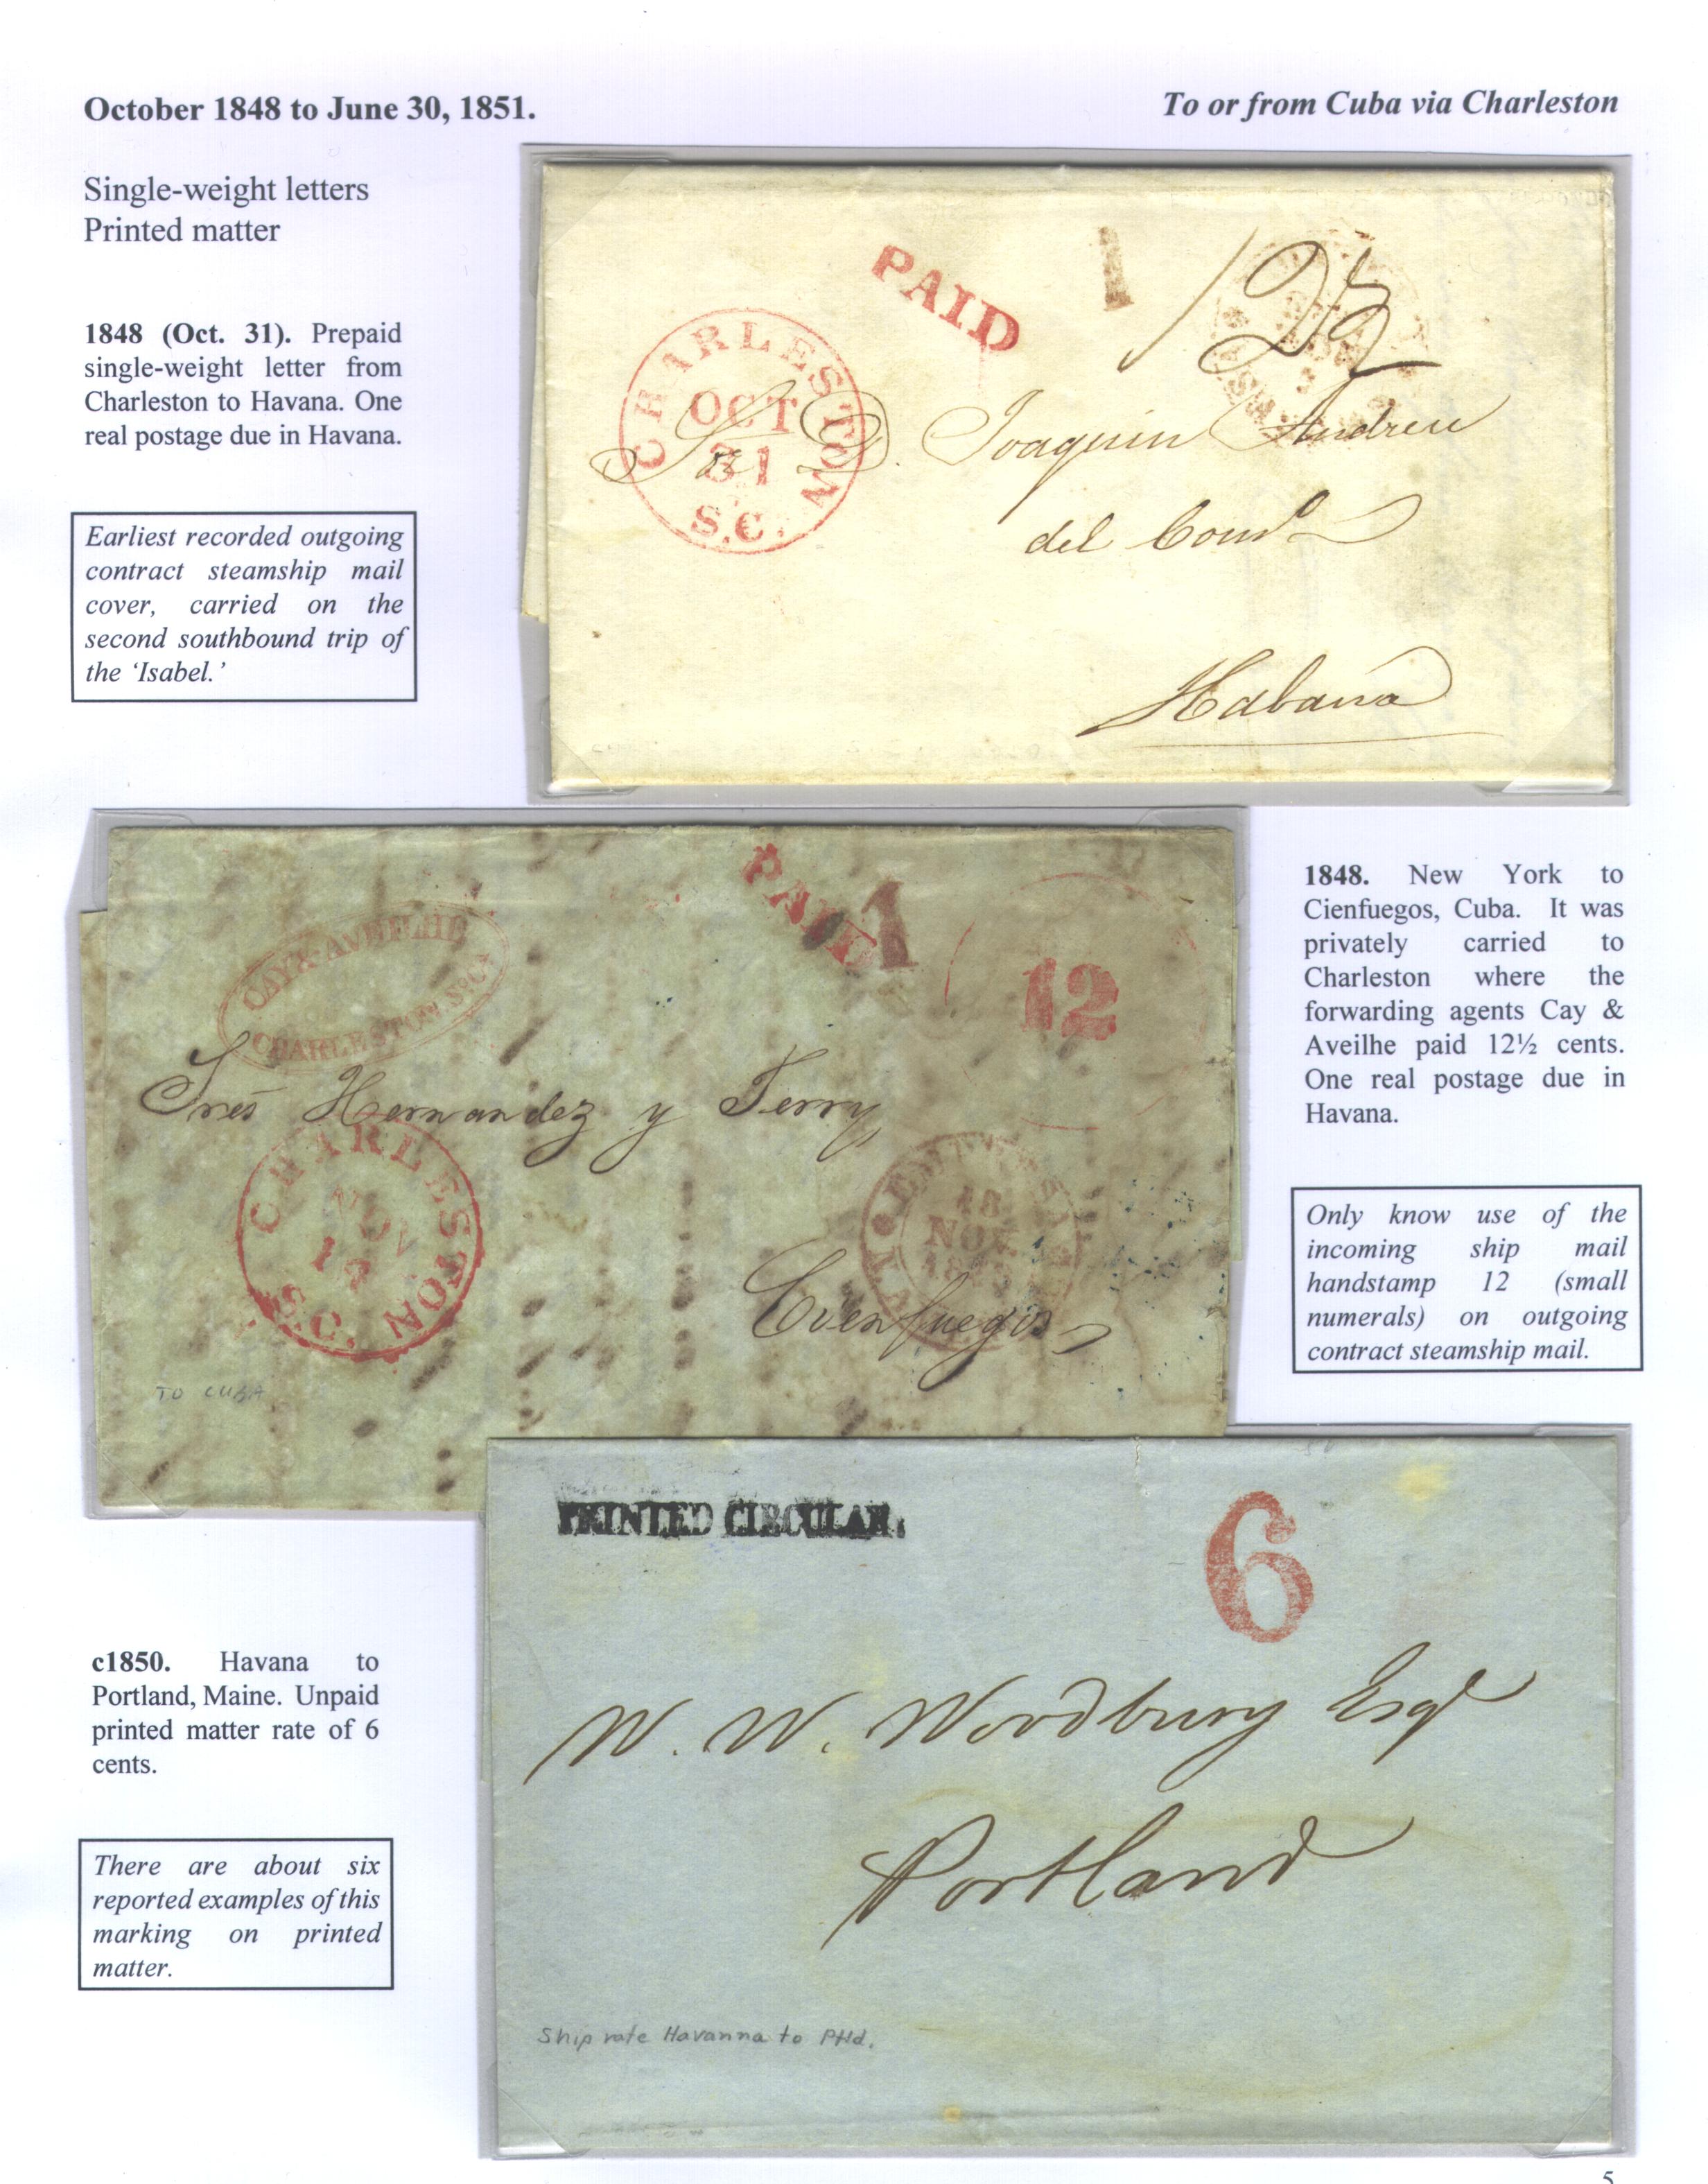 October 1848 to June 30, 1851.
To or from Cuba via Charleston
Single-weight letters
Printed matter
1848 (Oct. 31). Prepaid
single-weight letter from
Charleston to Havana. One
real postage due in Havana.
Earliest recorded outgoing
contract steamship mail
cover, carried on the
second southbound trip of
the ‘Isabel.’
PAID
1
12½
CHARLESTON
OCT
31
S.C.
Joaquin Andreu
del
Habana
PAID
1
12
CAY & AVEILHE
CHARLESTON, So. Ca.
Sres Hernandez y Terry
CHARLESTON
NOV
S.C.
18
NOV
Cienfuegos
TO CUBA
1848. New York to
Cienfuegos, Cuba. It was
privately carried to
Charleston where the
forwarding agents Cay &
Aveilhe paid 12½ cents.
One real postage due in
Havana.
Only know use of the
incoming ship mail
handstamp 12 (small
numerals) on outgoing
contract steamship mail.
PRINTED CIRCULAR.
6
W. W. Woodbury Esqr
Portland
Ship rate Havanna to Ptld.
c1850. Havana to
Portland, Maine. Unpaid
printed matter rate of 6
cents.
There are about six
reported examples of this
marking on printed
matter.
5